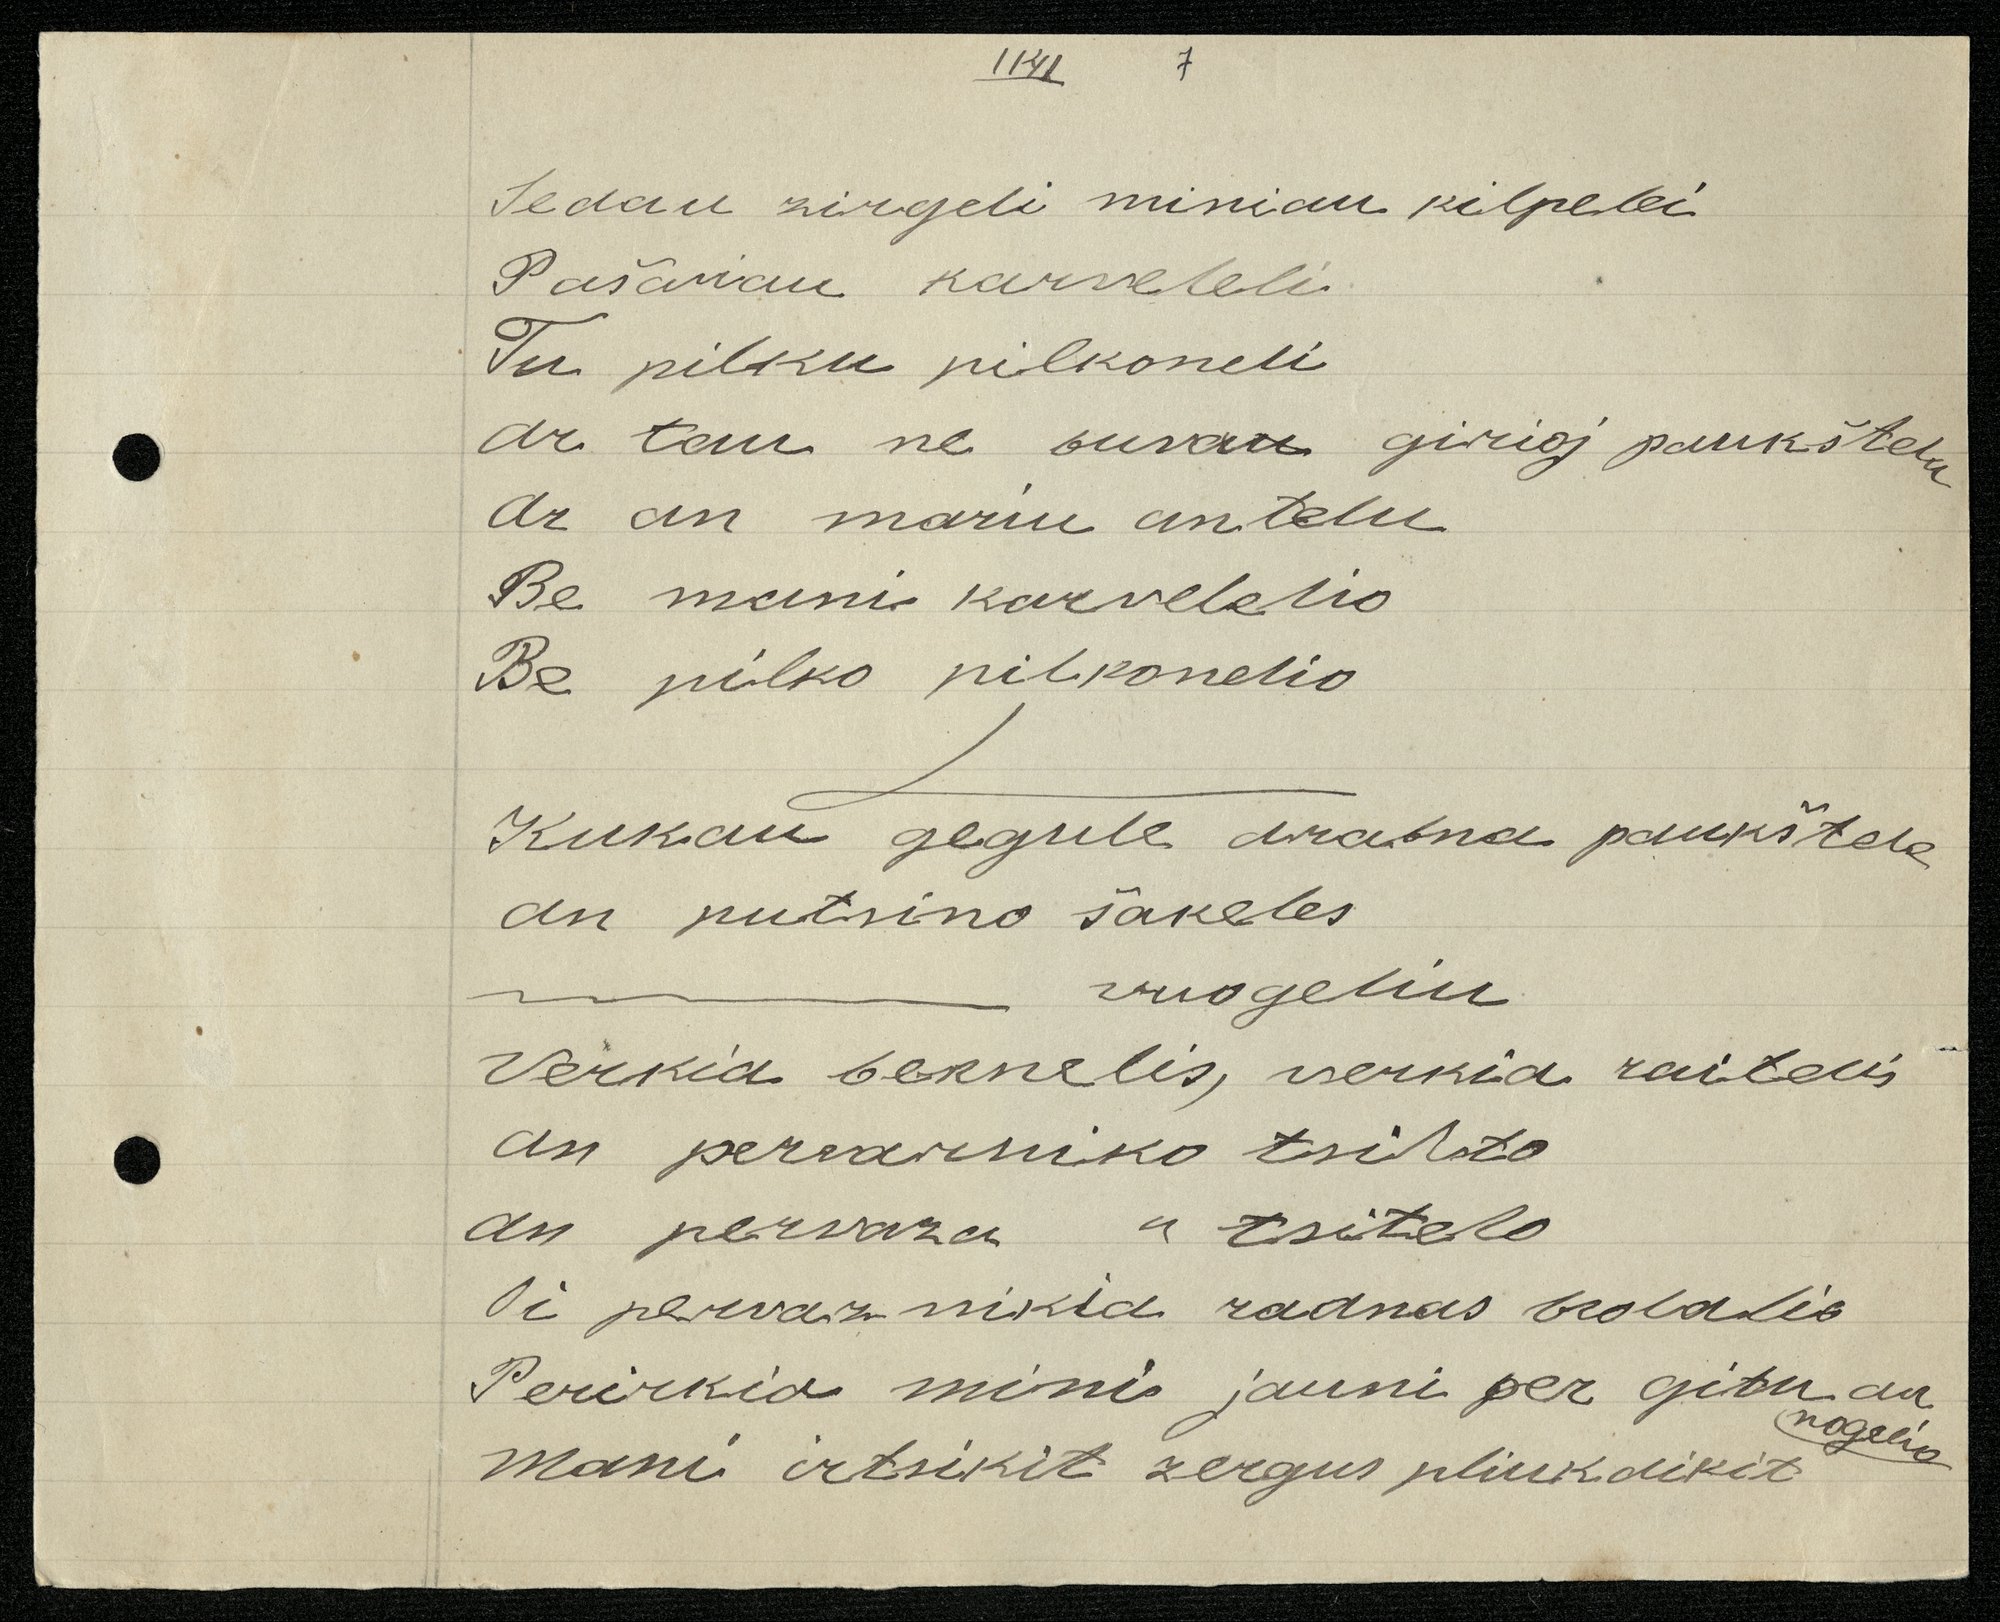 1141 7
Sedau zirgeli miniau kilpelei
Pašariau karveleli
Tu pilku pilkoneli
Ar tau ne buvau girioj paukštelu
Ar an mariu antelu
Be mani karvelelio
Be pilko pilkonelio
Kukau gegule drabna paukštele
an putsino šakeles
vuogeliu
Verkia bernelis, verkia raitelis
an pervarniko tsilto
an pervaza " tsitelo
Oi pervaznikia radnas brolalio
Perirkia mini jauni per gitu an
nogelio
Mani irtsikit zergus pliukdikit